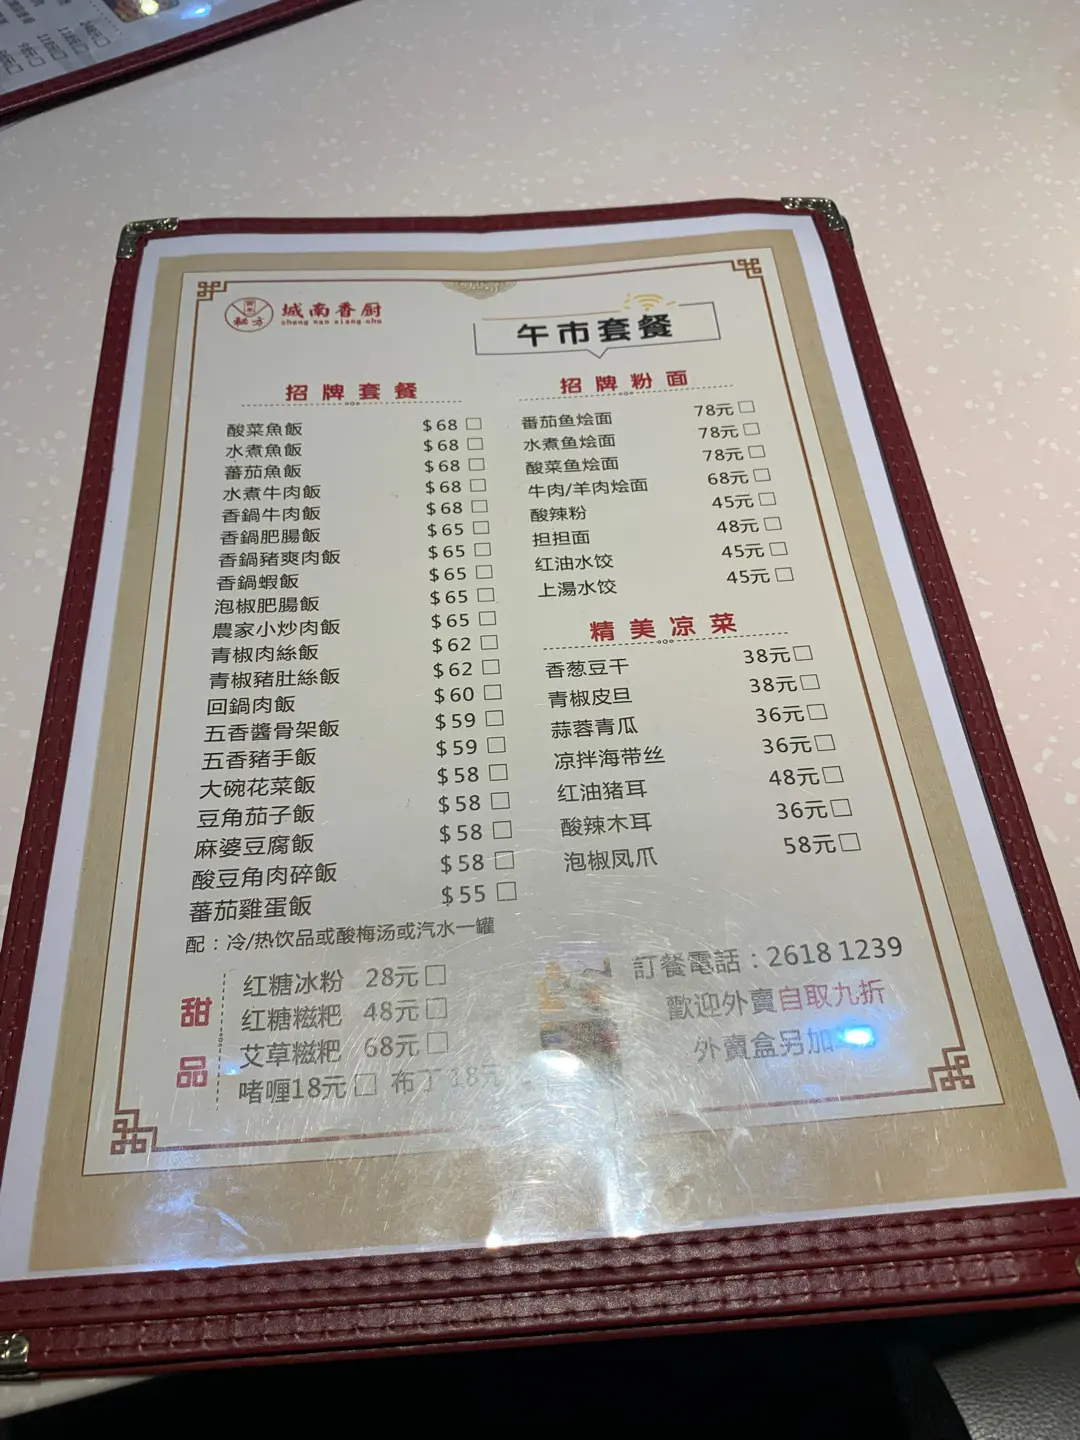 秘方
城南香厨
cheng nan xiang chu
午市套餐
招牌套餐
酸菜魚飯 $68
水煮魚飯 $68
蕃茄魚飯 $68
水煮牛肉飯 $68
香鍋牛肉飯 $68
香鍋肥腸飯 $65
香鍋豬爽肉飯 $65
香鍋蝦飯 $65
泡椒肥腸飯 $65
農家小炒肉飯 $65
青椒肉絲飯 $62
青椒豬肚絲飯 $62
回鍋肉飯 $60
五香醬骨架飯 $59
五香豬手飯 $59
大碗花菜飯 $58
豆角茄子飯 $58
麻婆豆腐飯 $58
酸豆角肉碎飯 $58
蕃茄雞蛋飯 $55
配：冷/热饮品或酸梅汤或汽水一罐
招牌粉面
番茄鱼烩面 78元
水煮鱼烩面 78元
酸菜鱼烩面 78元
牛肉/羊肉烩面 68元
酸辣粉 45元
担担面 48元
红油水饺 45元
上湯水饺 45元
精美凉菜
香葱豆干 38元
青椒皮旦 38元
蒜蓉青瓜 36元
凉拌海带丝 36元
红油猪耳 48元
酸辣木耳 36元
泡椒凤爪 58元
甜品
红糖冰粉 28元
红糖糍粑 48元
艾草糍粑 68元
啫喱18元 布丁 18元
訂餐電話：2618 1239
歡迎外賣自取九折
外賣盒另加